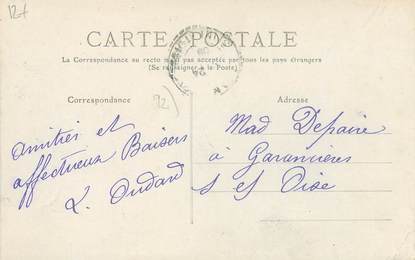 12+
CARTE POSTALE
La Correspondance au recto n'est pas acceptée par tous les pays étrangers
(Se renseigner à la Poste)
Correspondance
Adresse
92)
amitiés et
affectueux Baisers
L. Oudard
Mad Depaire
à Garannières
s et Oise